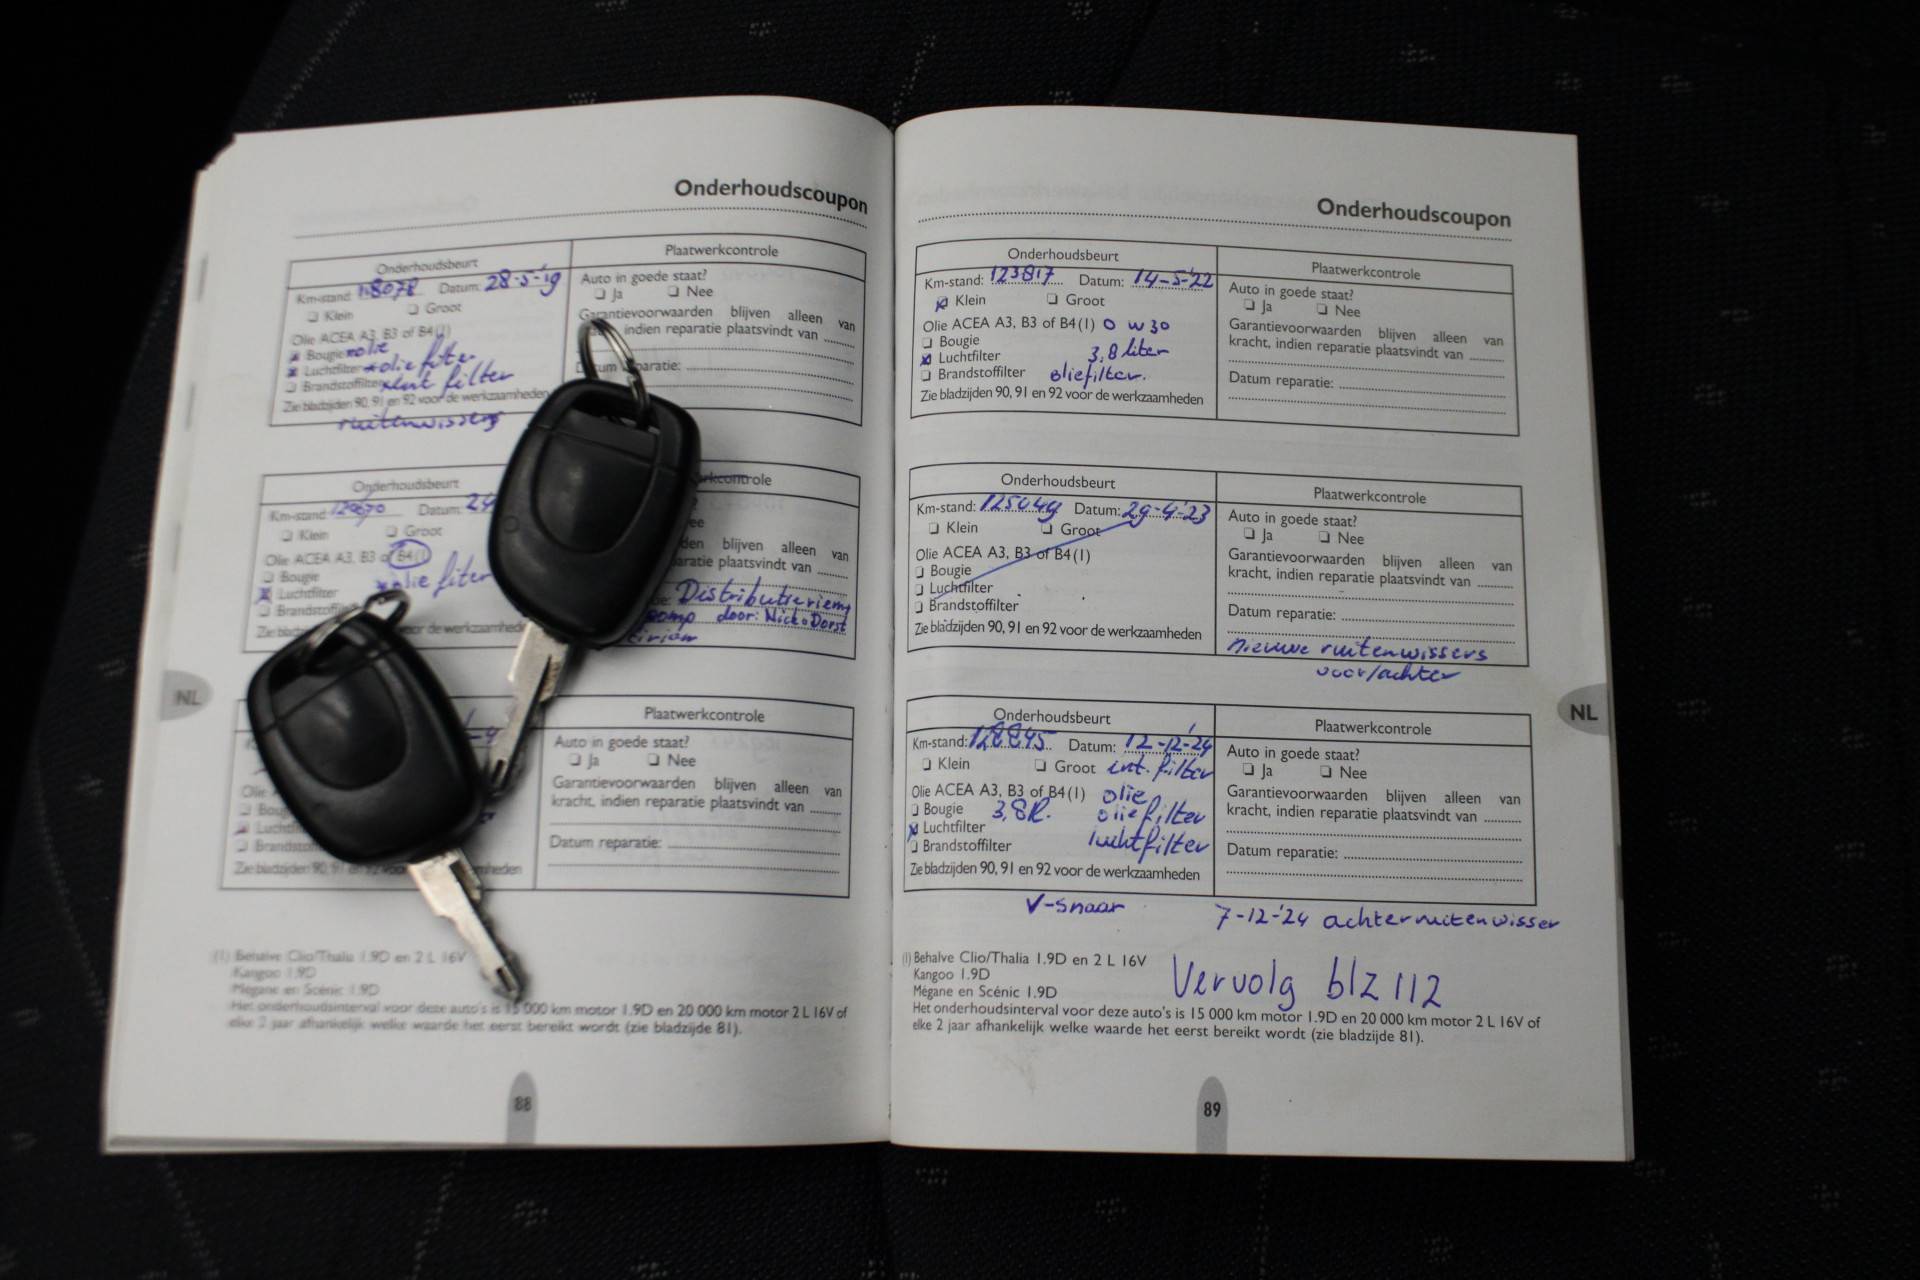 Onderhoudscoupon
Onderhoudsbeurt
Plaatwerkcontrole
Km-stand: 118078 Datum: 28-5-'19
Klein Groot
Auto in goede staat?
Ja Nee
Olie ACEA A3, B3 of B4(1)
Bougie olie
Luchtfilter oliefilter
Brandstoffilter
filter
Zie bladzijden 90, 91 en 92 voor de werkzaamheden
ruitenwissers
Garantievoorwaarden blijven alleen van
indien reparatie plaatsvindt van
Onderhoudsbeurt
Km-stand: Datum: 24
Klein Groot
Olie ACEA A3, B3 of B4(1)
Bougie
Luchtfilter oliefilter
blijven alleen van
plaatsvindt van
Distributieriem
pomp door: Nick v Dorst
voor de
Plaatwerkcontrole
Auto in goede staat?
Ja Nee
Garantievoorwaarden blijven alleen van
kracht, indien reparatie plaatsvindt van
Datum reparatie:
NL
(1) Behalve Clio/Thalia 1.9D en 2 L 16V
Kangoo 1.9D
Mégane en Scénic 1.9D
Het onderhoudsinterval voor deze auto's is 15 000 km motor 1.9D en 20 000 km motor 2 L 16V of
elke 2 jaar afhankelijk welke waarde het eerst bereikt wordt (zie bladzijde 81).
88
Onderhoudscoupon
Onderhoudsbeurt
Plaatwerkcontrole
Km-stand: 123817 Datum: 14-5-'22
Klein Groot
Olie ACEA A3, B3 of B4(1) 0 W 30
Bougie
Luchtfilter 3,8 liter
Brandstoffilter oliefilter.
Zie bladzijden 90, 91 en 92 voor de werkzaamheden
Auto in goede staat?
Ja Nee
Garantievoorwaarden blijven alleen van
kracht, indien reparatie plaatsvindt van
Datum reparatie:
Onderhoudsbeurt
Plaatwerkcontrole
Km-stand: 125049 Datum: 29-4-'23
Klein Groot
Olie ACEA A3, B3 of B4(1)
Bougie
Luchtfilter
Brandstoffilter
Zie bladzijden 90, 91 en 92 voor de werkzaamheden
Auto in goede staat?
Ja Nee
Garantievoorwaarden blijven alleen van
kracht, indien reparatie plaatsvindt van
Datum reparatie:
nieuwe ruitenwissers
voor/achter
Onderhoudsbeurt
Plaatwerkcontrole
Km-stand: 128845 Datum: 12-12-'24
Klein Groot int. filter
Olie ACEA A3, B3 of B4(1) olie
Bougie 3,8l. oliefilter
Luchtfilter luchtfilter
Brandstoffilter
Zie bladzijden 90, 91 en 92 voor de werkzaamheden
Auto in goede staat?
Ja Nee
Garantievoorwaarden blijven alleen van
kracht, indien reparatie plaatsvindt van
Datum reparatie:
V-snaar
7-12-'24 achterruitenwisser
NL
(1) Behalve Clio/Thalia 1.9D en 2 L 16V
Kangoo 1.9D
Mégane en Scénic 1.9D
Vervolg blz 112
Het onderhoudsinterval voor deze auto's is 15 000 km motor 1.9D en 20 000 km motor 2 L 16V of
elke 2 jaar afhankelijk welke waarde het eerst bereikt wordt (zie bladzijde 81).
89